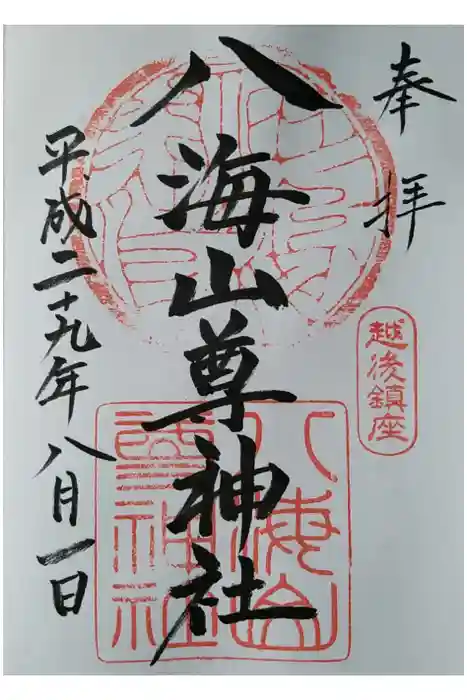 奉拝
越後鎮座
八海山尊神社
八海山尊神社
平成二十九年八月一日